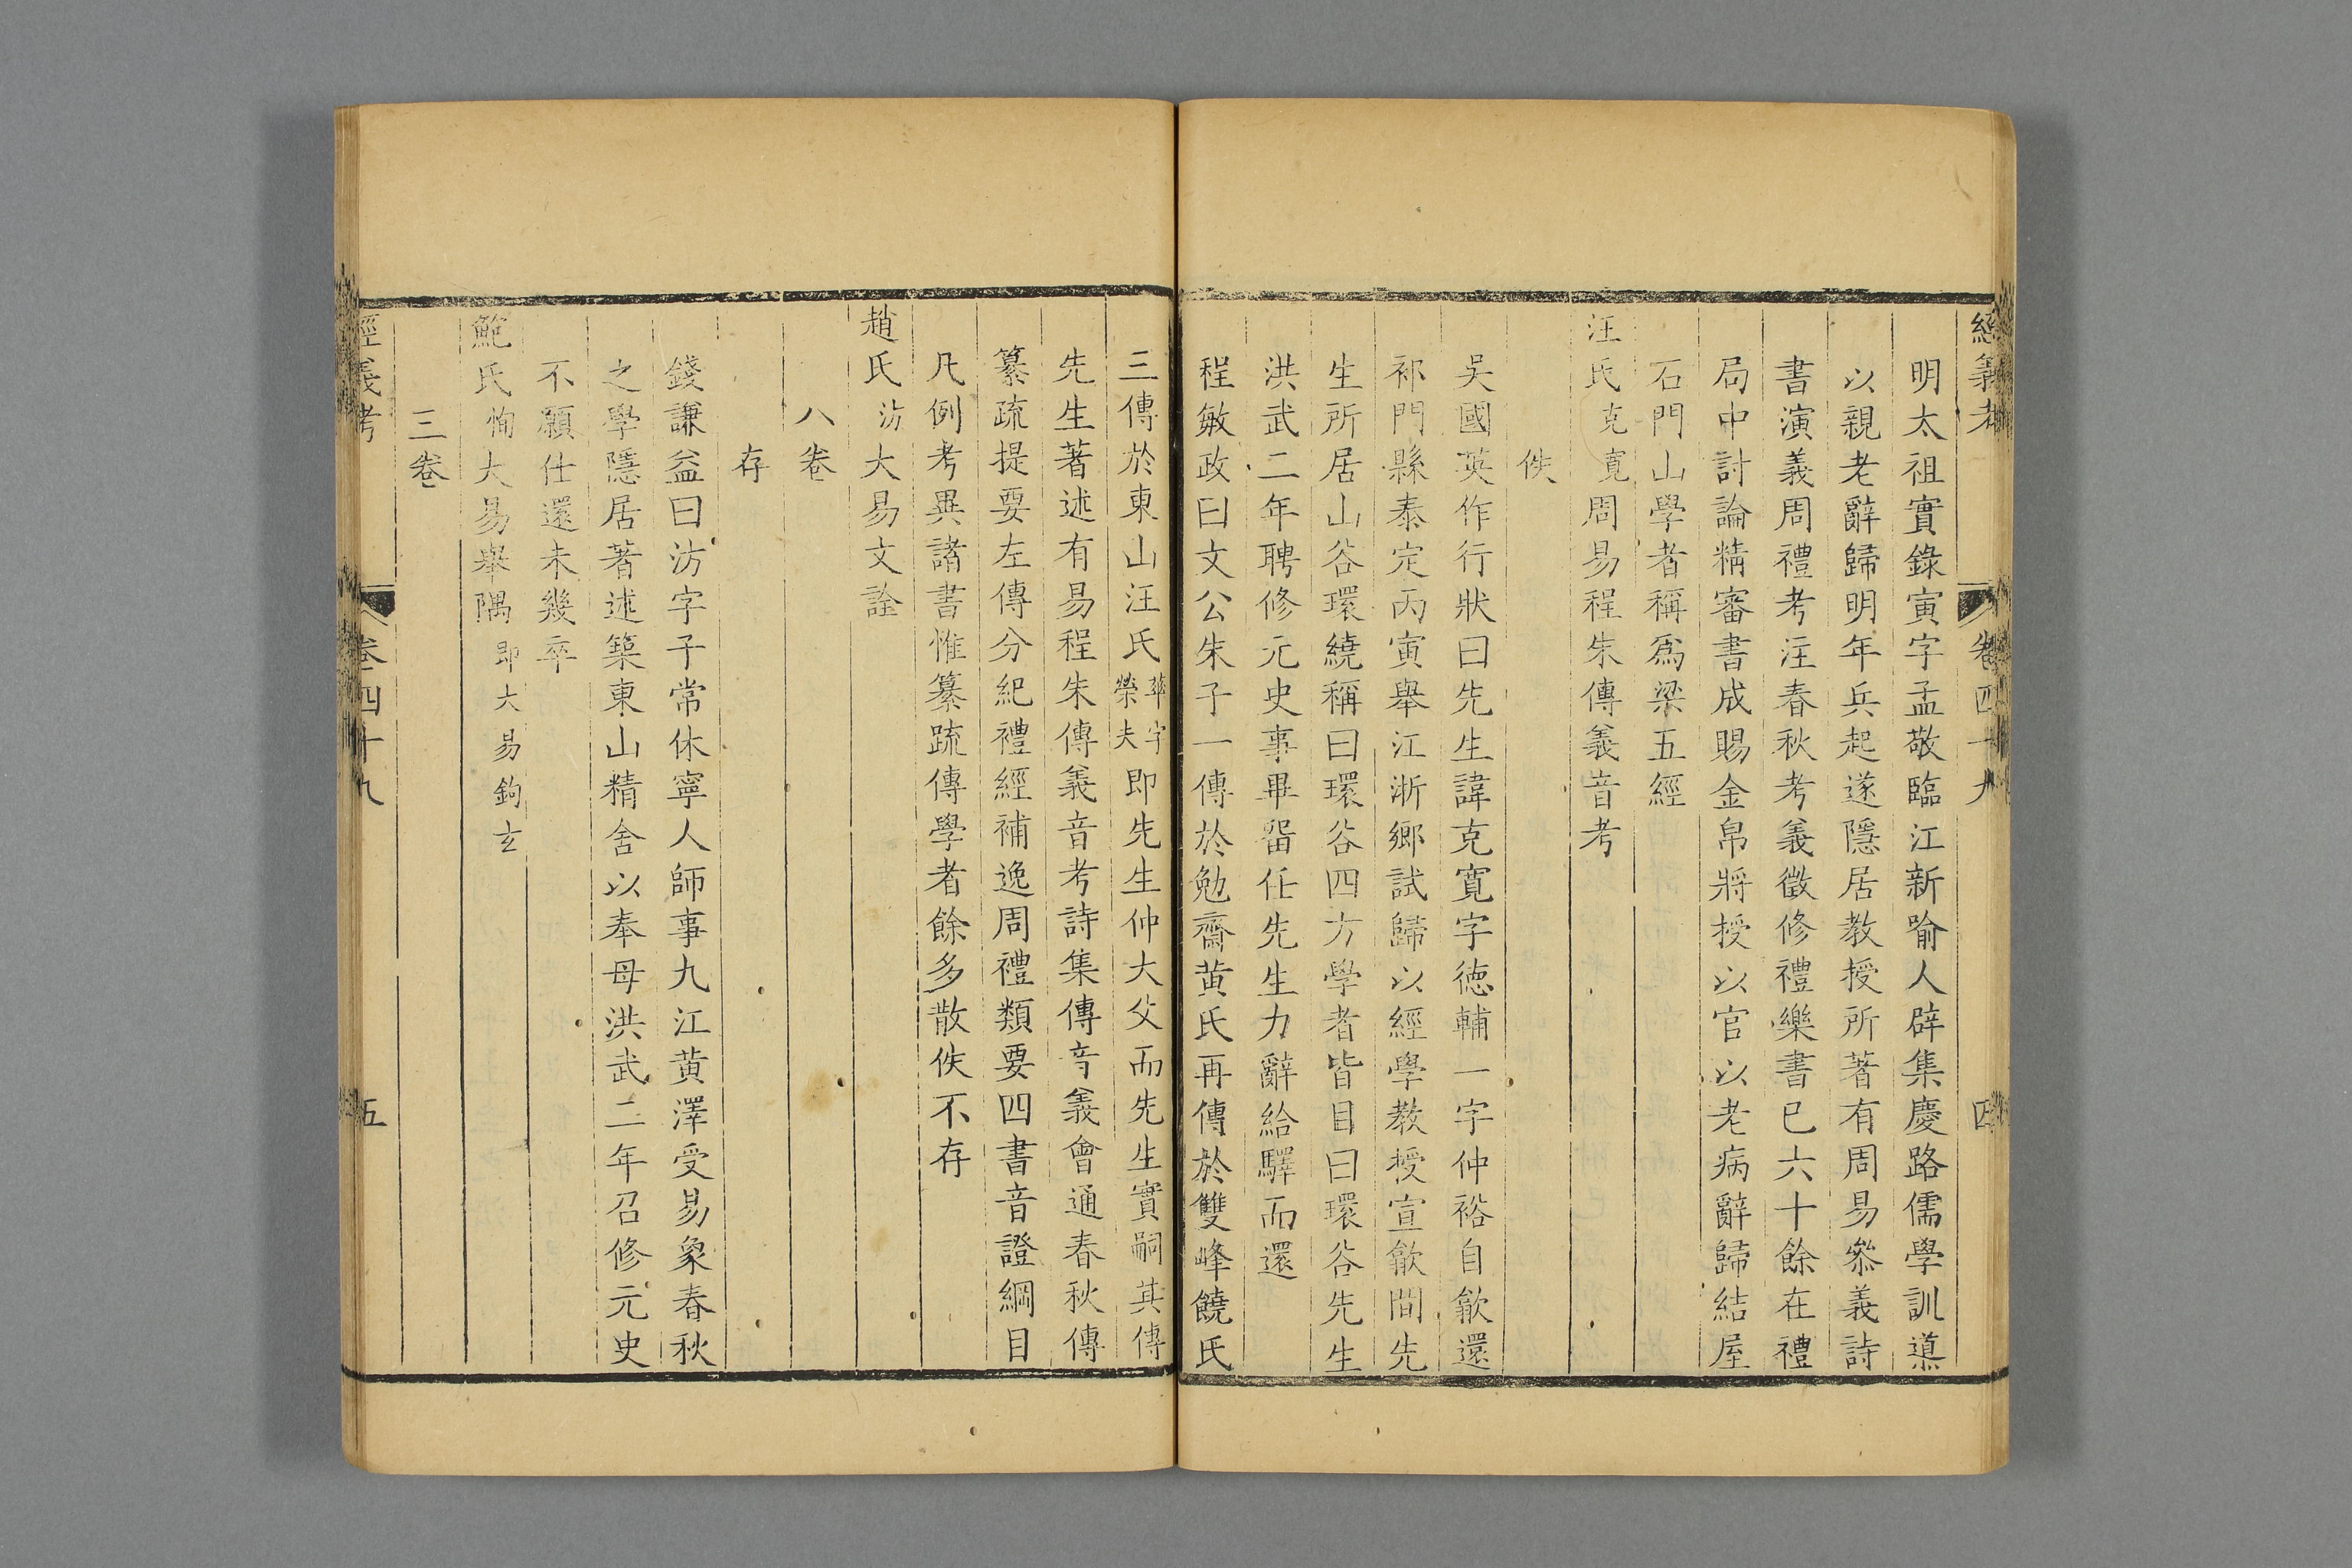 經義考 卷四十九 四
明太祖實錄寅字孟敬臨江新喻人辟集慶路儒學訓導
以親老辭歸明年兵起遂隱居教授所著有周易叅義詩
書演義周禮考注春秋考義徵修禮樂書已六十餘在禮
局中討論精審書成賜金帛將授以官以老病辭歸結屋
石門山學者稱爲梁五經
汪氏克寬周易程朱傳義音考
佚
吳國英作行狀曰先生諱克寬字德輔一字仲裕自歙還
祁門縣泰定丙寅舉江浙鄉試歸以經學教授宣歙間先
生所居山谷環繞稱曰環谷四方學者皆目曰環谷先生
洪武二年聘修元史事畢畱任先生力辭給驛而還
程敏政曰文公朱子一傳於勉齋黃氏再傳於雙峰饒氏
三傳於東山汪氏華字榮夫即先生仲大父而先生實嗣其傳
先生著述有易程朱傳義音考詩集傳音義會通春秋傳
纂疏提要左傳分紀禮經補逸周禮類要四書音證綱目
凡例考異諸書惟纂疏傳學者餘多散佚不存
趙氏汸大易文詮
八卷
存
錢謙益曰汸字子常休寧人師事九江黃澤受易象春秋
之學隱居著述築東山精舍以奉母洪武二年召修元史
不願仕還未幾卒
鮑氏恂大易舉隅即大易鉤玄
三卷
經義考 卷四十九 五